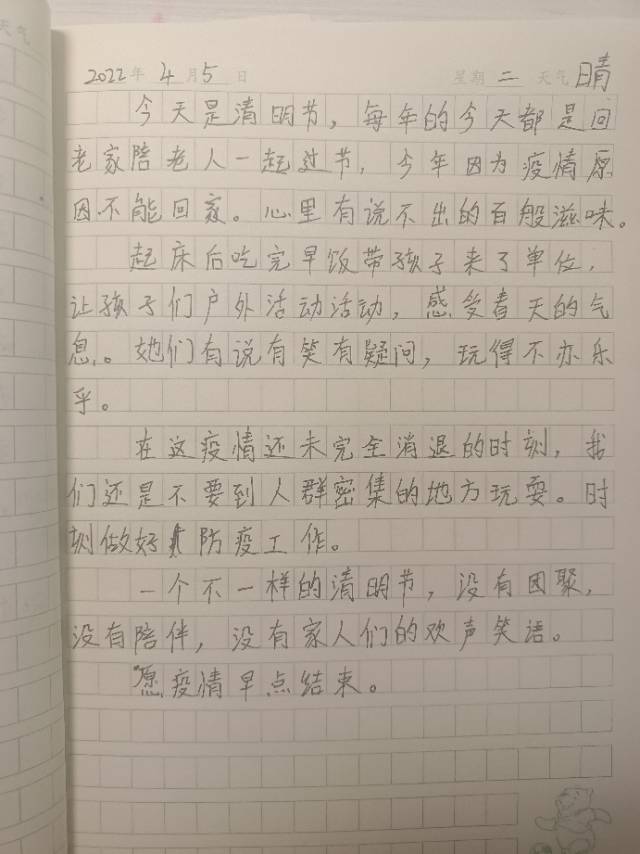 天气
2022年 4月5日 星期二 天气晴
今天是清明节，每年的今天都是回
老家陪老人一起过节，今年因为疫情原
因不能回家。心里有说不出的百般滋味。
起床后吃完早饭带孩子来了单位，
让孩子们户外活动活动，感受春天的气
息。她们有说有笑有疑问，玩得不亦乐
乎。
在这疫情还未完全消退的时刻，我
们还是不要到人群密集的地方玩耍。时
刻做好防疫工作。
一个不一样的清明节，没有团聚，
没有陪伴，没有家人们的欢声笑语。
愿疫情早点结束。